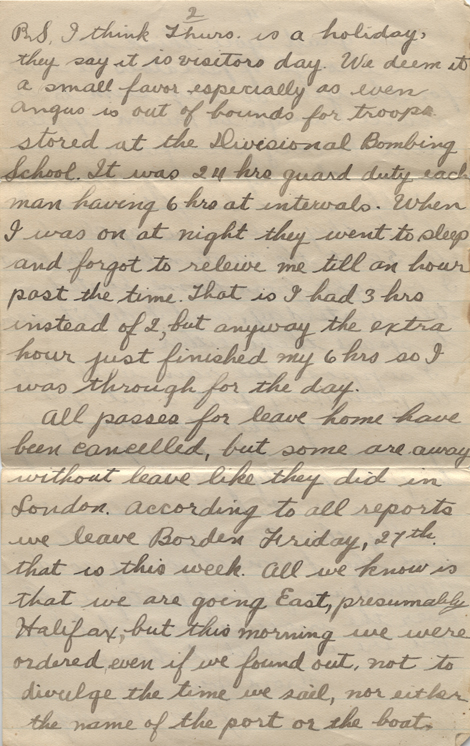 2
P.S. I think Thurs. is a holiday,
they say it is visitors day. We deem it
a small favor especially as even
Angus is out of bounds for troops
stored at the Divisional Bombing
School. It was 24 hrs guard duty each
man having 6 hrs at intervals. When
I was on at night they went to sleep
and forgot to releive me till an hour
past the time. That is I had 3 hrs
instead of 2, but anyway the extra
hour just finished my 6 hrs so I
was through for the day.
All passes for leave home have
been cancelled, but some are away
without leave like they did in
London. According to all reports
we leave Borden Friday, 27th.
that is this week. All we know is
that we are going East, presumably
Halifax, but this morning we were
ordered, even if we found out, not to
divulge the time we sail, nor either
the name of the port or the boat.